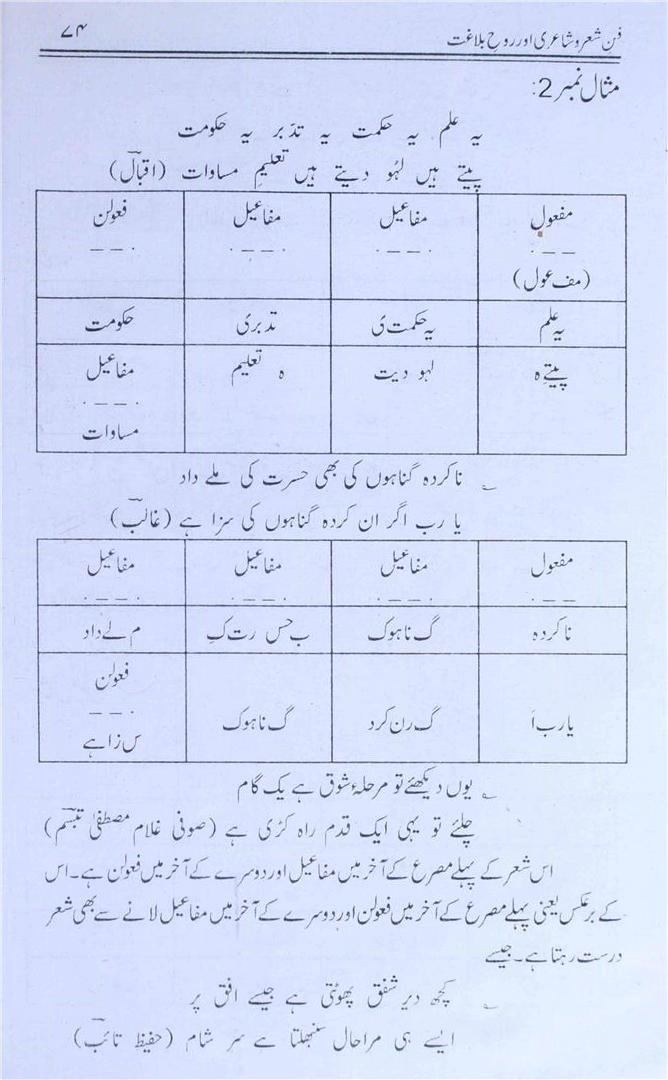 فن شعر و شاعری اور روح بلاغت ۷۴
مثال نمبر 2:
یہ علم یہ حکمت یہ تدبر یہ حکومت
پیتے ہیں لہُو دیتے ہیں تعلیمِ مساوات (اقبالؔ)
مفعول مفاعیل مفاعیل فعولن
_ _ . . _ _ . . _ _ . . _ _
(مف عول)
یہ علم یہ حکمت ی تدبری حکومت
پیتے ہ لہو دیت ہ تعلیم مفاعیل
. _ _ .
مساوات
؎ ناکردہ گناہوں کی بھی حسرت کی ملے داد
یا رب اگر ان کردہ گناہوں کی سزا ہے (غالبؔ)
مفعول مفاعیل مفاعیل مفاعیل
_ _ . . _ _ . . _ _ . . _ _ .
ناکردہ گ ناہوک ب حس رت کِ م لے داد
یارب اَ گ رن کرد گ ناہوک فعولن
_ _ .
س زا ہے
؎ یوں دیکھئے تو مرحلۂ شوق ہے یک گام
چلئے تو یہی ایک قدم راہ کڑی ہے (صوفی غلام مصطفیٰ تبسّم)
اس شعر کے پہلے مصرع کے آخر میں مفاعیل اور دوسرے کے آخر میں فعولن ہے۔ اس
کے برعکس یعنی پہلے مصرع کے آخر میں فعولن اور دوسرے کے آخر میں مفاعیل لانے سے بھی شعر
درست رہتا ہے۔ جیسے
؎ کچھ دیر شفق پھوٹتی ہے جیسے افق پر
ایسے ہی مرا حال سنبھلتا ہے سر شام (حفیظ تائبؔ)